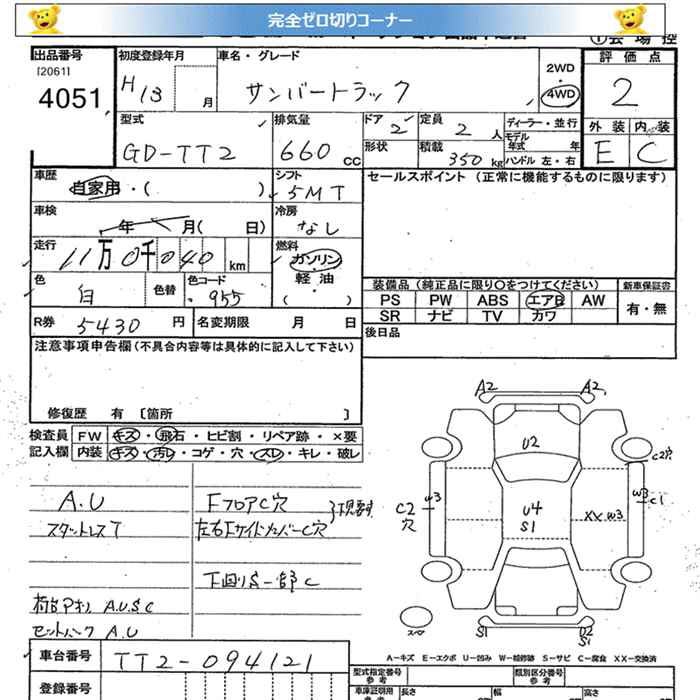 完全ゼロ切りコーナー
出品番号
[2061]
4051
初度登録年月
H13 月
車名・グレード
サンバートラック
2WD
・
4WD
評価点
2
型式
GD-TT2
排気量
660 cc
ドア
2
定員
2 人
ディーラー・並行
モデル
年式 年
形状
積載
350 kg
ハンドル 左・右
外装 内装
E C
車歴
自家用・( )
シフト
5MT
セールスポイント (正常に機能するものに限ります)
車検
年 月( 日)
冷房
なし
走行
11万0千040 km
燃料
ガソリン
軽油
( )
色
白
色替
色コード
955
装備品 (純正品に限り○をつけてください)
新車保証書
PS PW ABS エアB AW
SR ナビ TV カワ
有・無
R券 5430 円
名変期限 月 日
後日品
注意事項申告欄 (不具合内容等は具体的に記入して下さい)
修復歴 有 [箇所 ]
検査員 FW キズ・飛石・ヒビ割・リペア跡・×要
記入欄 内装 キズ・汚レ・コゲ・穴・スレ・キレ・破レ
A.U
スタットレスT
FフロアC穴
左右FサイドカバーC穴
下廻りS一部C
荷台アオリ A.U.S.C
A.U
A2 A2
U2
U3
C2
穴
U4
S1
XX W3
W3
C1
C2穴
スペア
S1
U2
S1
A-キズ E-エクボ U-凹み W-補修跡 S-サビ C-腐食 XX-交換済
車台番号 TT2-094121
登録番号
型式指定番号
参考
類別区分番号
参考
車庫証明用
参考
長さ
幅
高さ